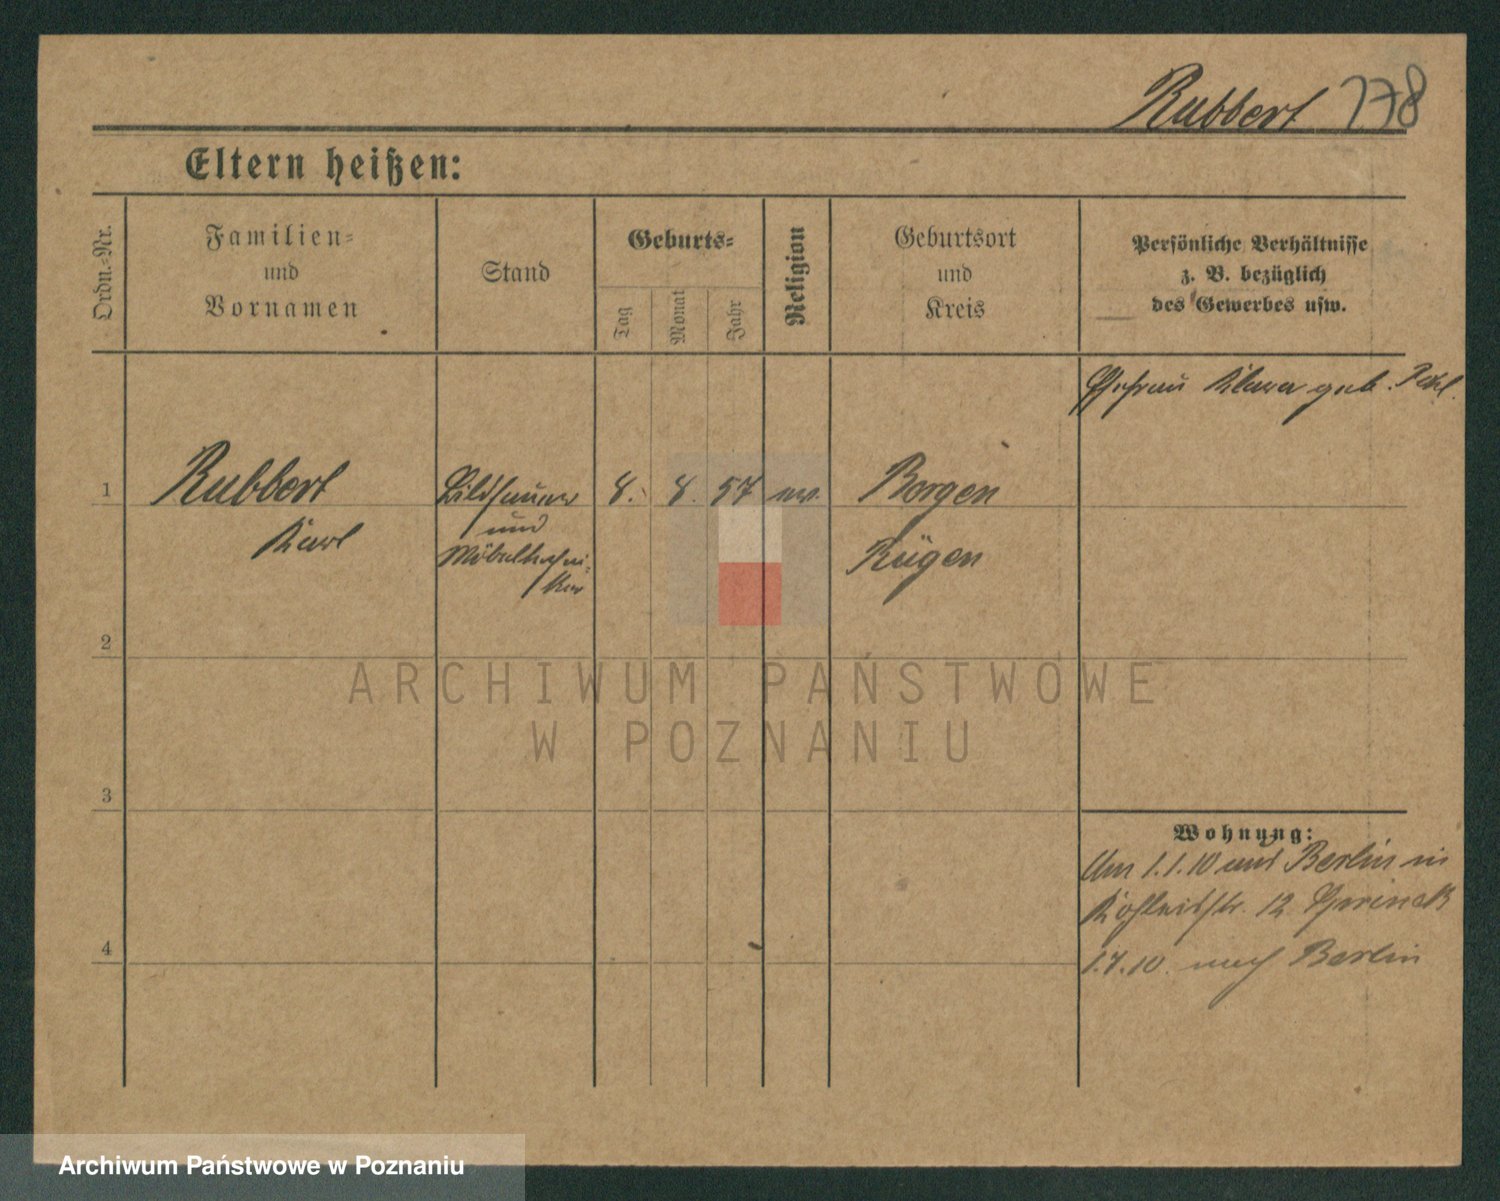 Rubbert 178
Eltern heißen:
Ordn.-Nr.
Familien-
und
Vornamen
Stand
Geburts-
Tag
Monat
Jahr
Religion
Geburtsort
und
Kreis
Persönliche Verhältnisse
z. B. bezüglich
des Gewerbes usw.
Ehefrau Klara geb.
1
Rubbert
Karl
Bildhauer
und
8. 8. 57 ev.
Bergen
Rügen
2
3
4
Wohnung:
Am 1.1.10 aus Berlin in
12
1.7.10. nach Berlin
ARCHIWUM PAŃSTWOWE
W POZNANIU
Archiwum Państwowe w Poznaniu